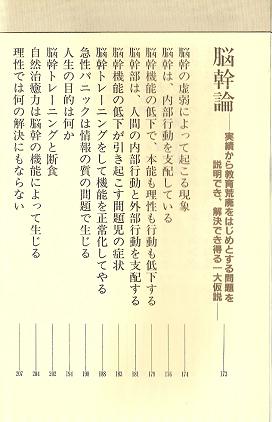 脳幹論―実績から教育荒廃をはじめとする問題を
説明でき、解決でき得る一大仮説― 173
脳幹の虚弱によって起こる現象 174
脳幹は、内部行動を支配している 176
脳幹機能の低下で、本能も理性も行動も低下する 179
脳幹部は、人間の内部行動と外部行動を支配する 181
脳幹機能の低下が引き起こす問題児の症状 183
脳幹トレーニングをして機能を正常化してやる 188
急性パニックは情報の質の問題で生じる 190
人生の目的は何か 194
脳幹トレーニングと断食 202
自然治癒力は脳幹の機能によって生じる 204
理性では何の解決にもならない 207